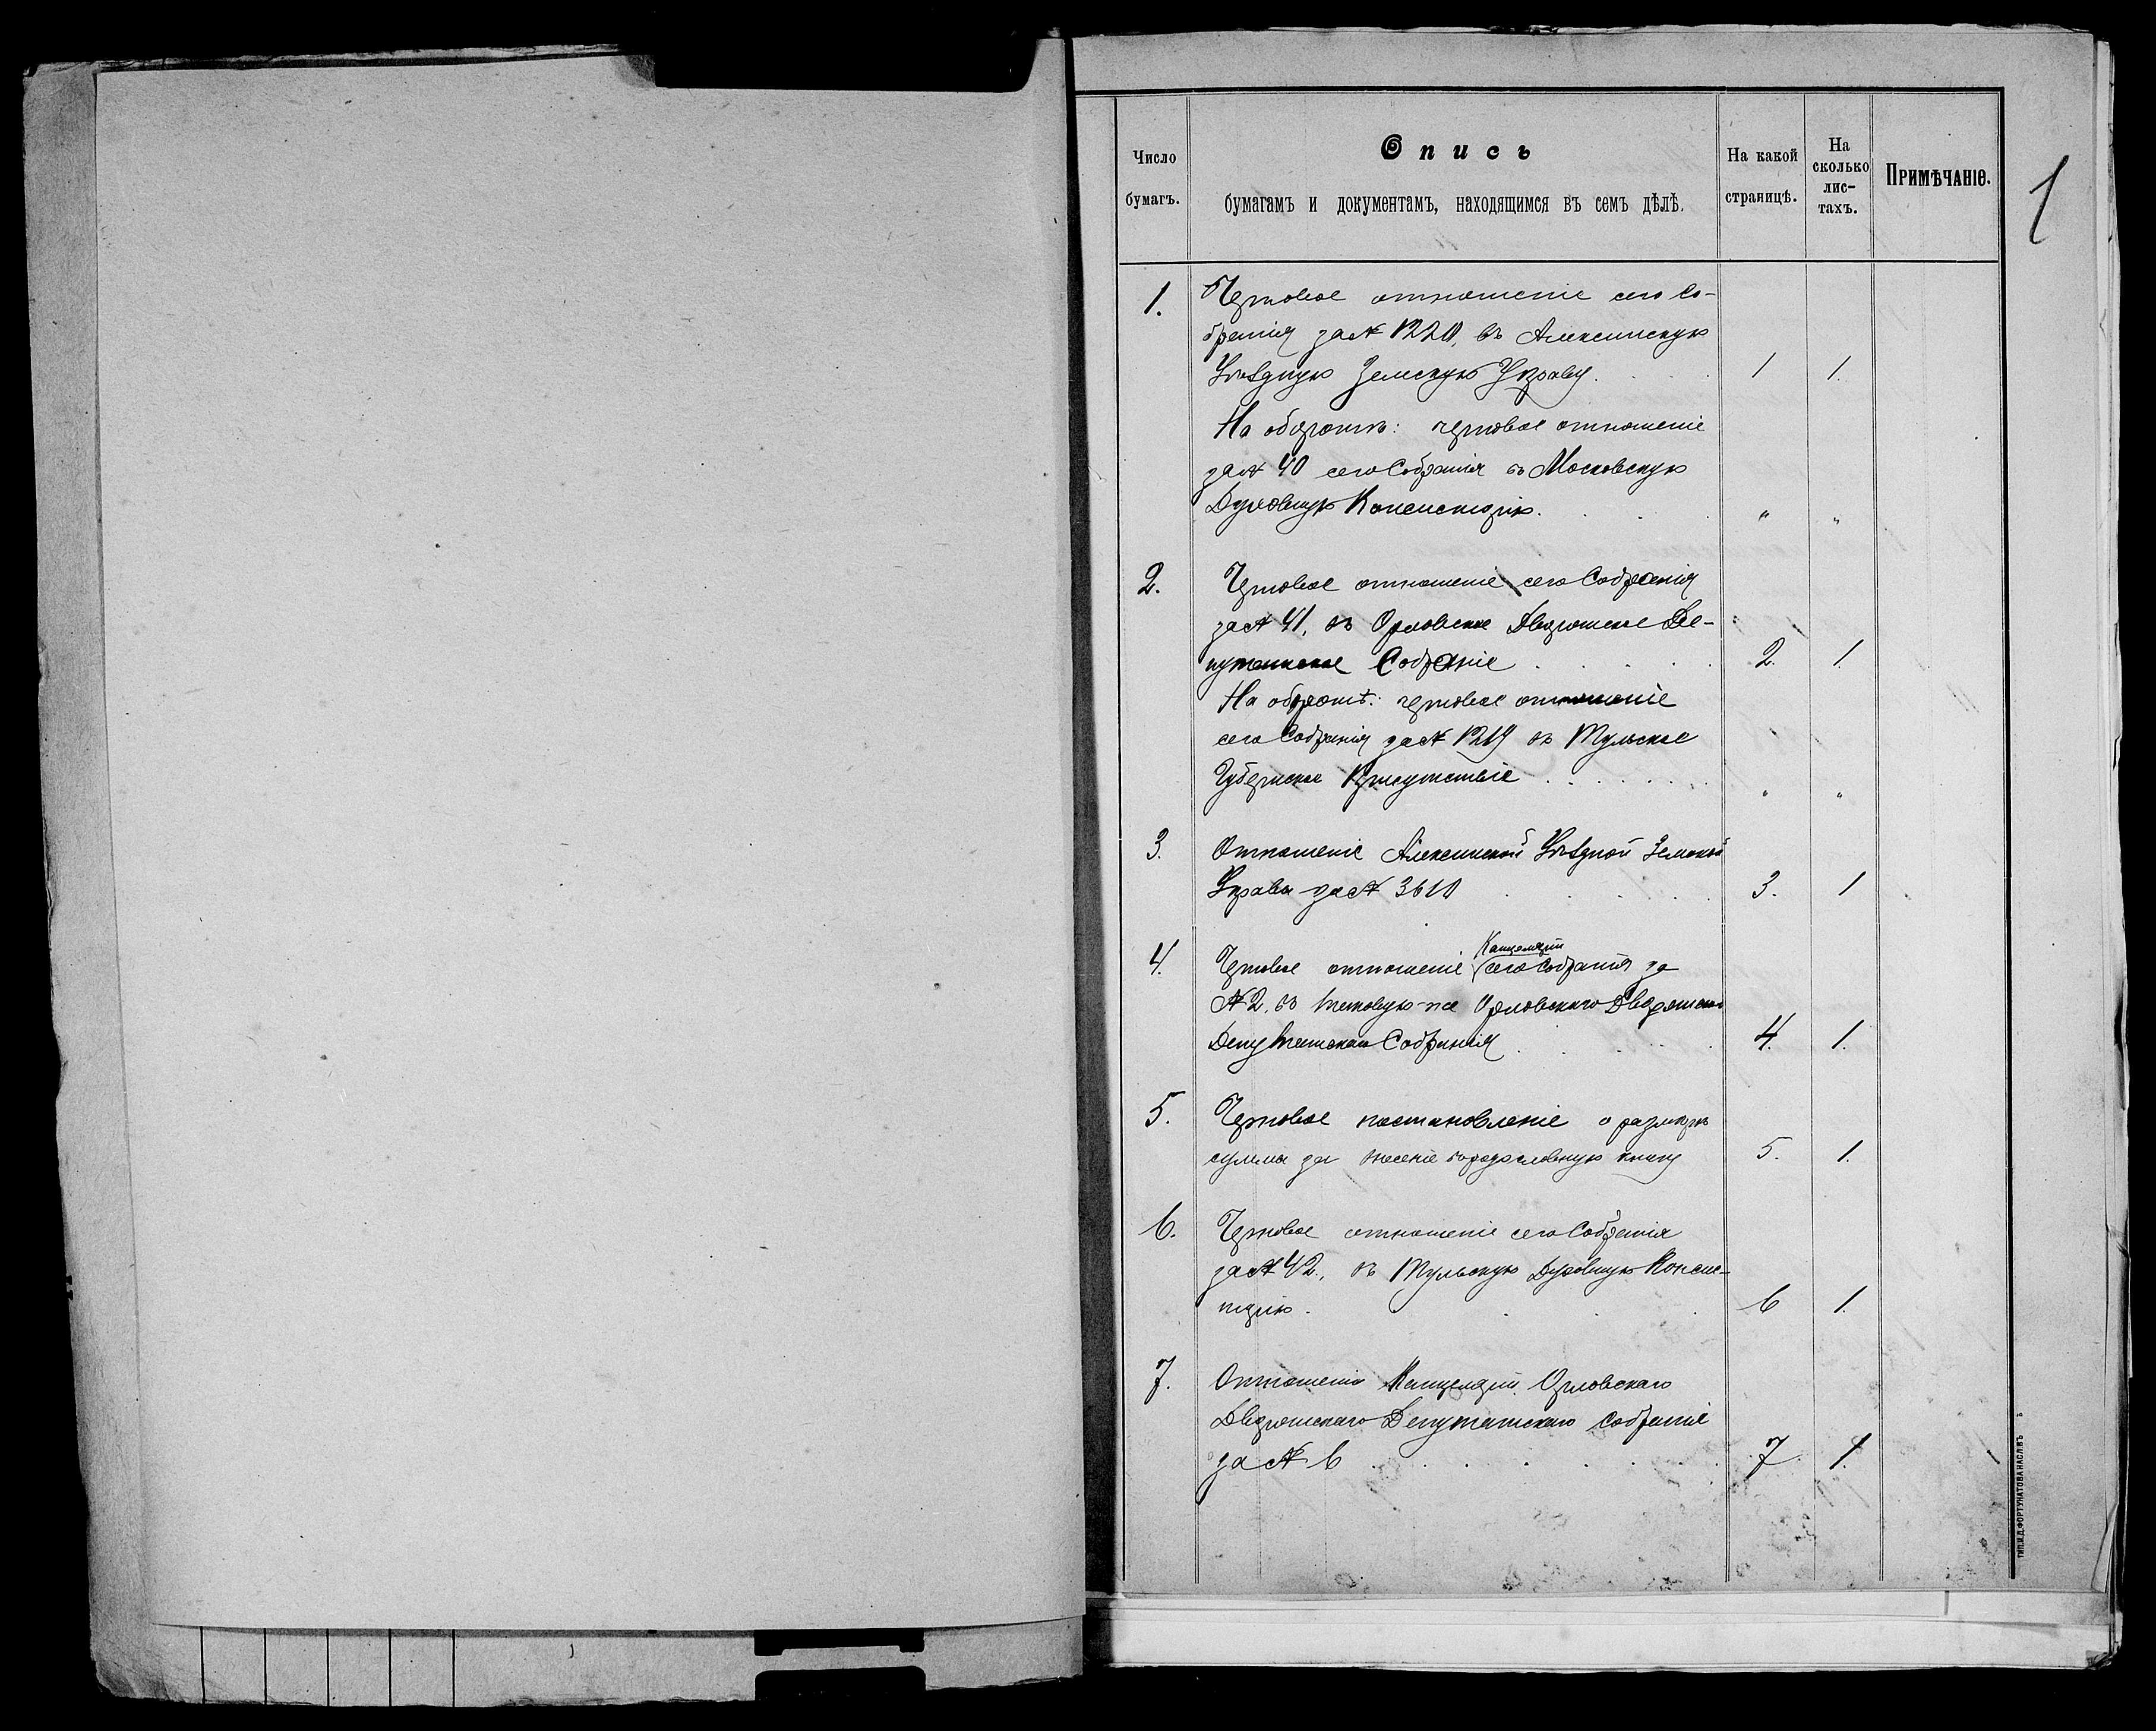 1
Число бумагъ.
Опись
бумагамъ и документамъ, находящимся въ семъ дѣлѣ.
На какой страницѣ.
На сколько лис-тахъ.
Примѣчаніе.
1. Черновое отношеніе сего Со-
бранія за № 1220, въ Алексинскую
Уѣздную Земскую Управу. 1 1.
На оборотѣ: черновое отношеніе
за № 40 сего Собранія въ Московскую
Духовную Консисторію. " "
2. Черновое отношеніе сего Собранія
за № 41, въ Орловское Дворянское Де-
путатское Собраніе 2. 1.
На оборотѣ: черновое отношеніе
сего Собранія за № 1219 въ Тульское
Губернское Присутствіе " "
3. Отношеніе Алексинской Уѣздной Земской
Управы за № 3610 3. 1
Канцеляріи
4. Черновое отношеніе сего Собранія за
№ 2, въ таковую-же Орловскаго Дворянскаго
Депутатскаго Собранія 4. 1.
5. Черновое постановленіе о размѣрѣ
суммы за внесеніе въ родословную книгу 5. 1.
6. Черновое отношеніе сего Собранія
за № 42, въ Тульскую Духовную Консис-
торію. 6 1.
7. Отношеніе Канцеляріи Орловскаго
Дворянскаго Депутатскаго Собранія
за № 6 7. 1.
ТИП. И.Д. ФОРТУНАТОВА НАСЛ. ВЪ